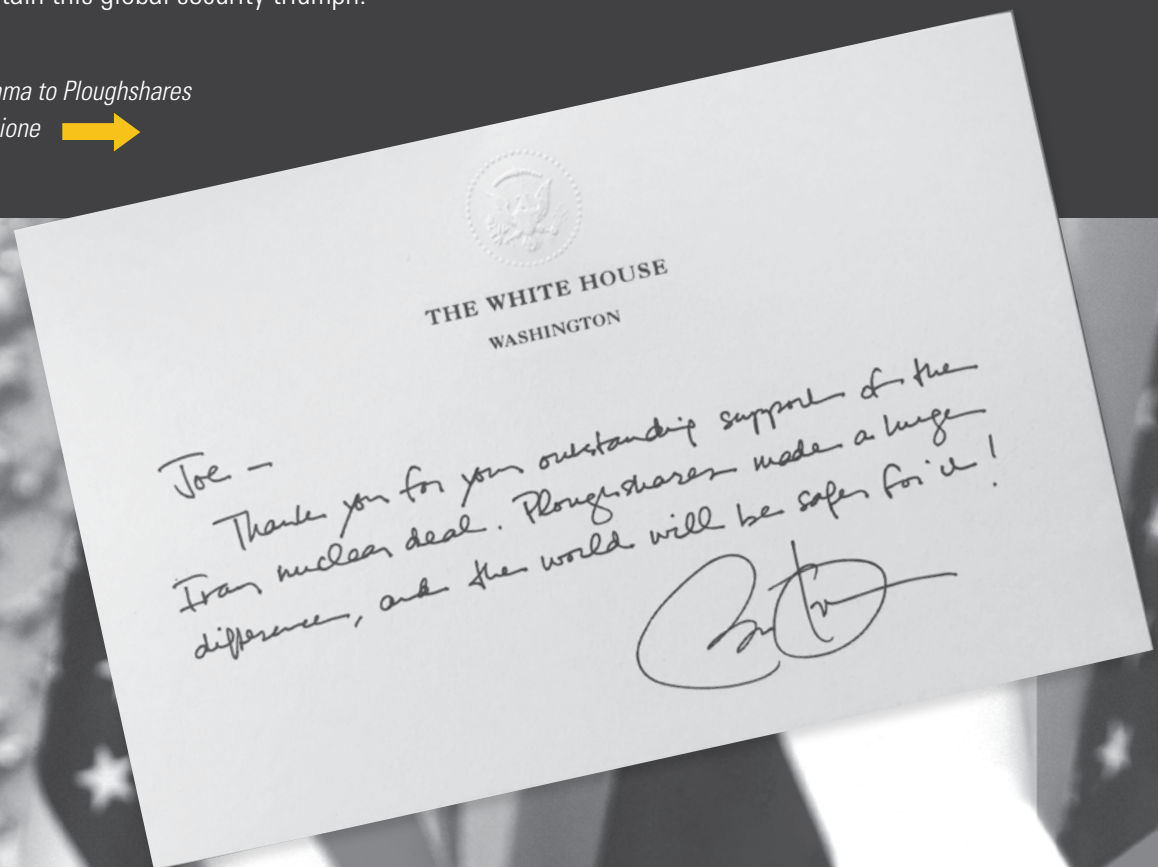 tain this global security triumph.
ama to Ploughshares
ione
THE WHITE HOUSE
WASHINGTON
Joe –
Thank you for your outstanding support of the
Iran nuclear deal. Ploughshares made a huge
difference, and the world will be safer for it!